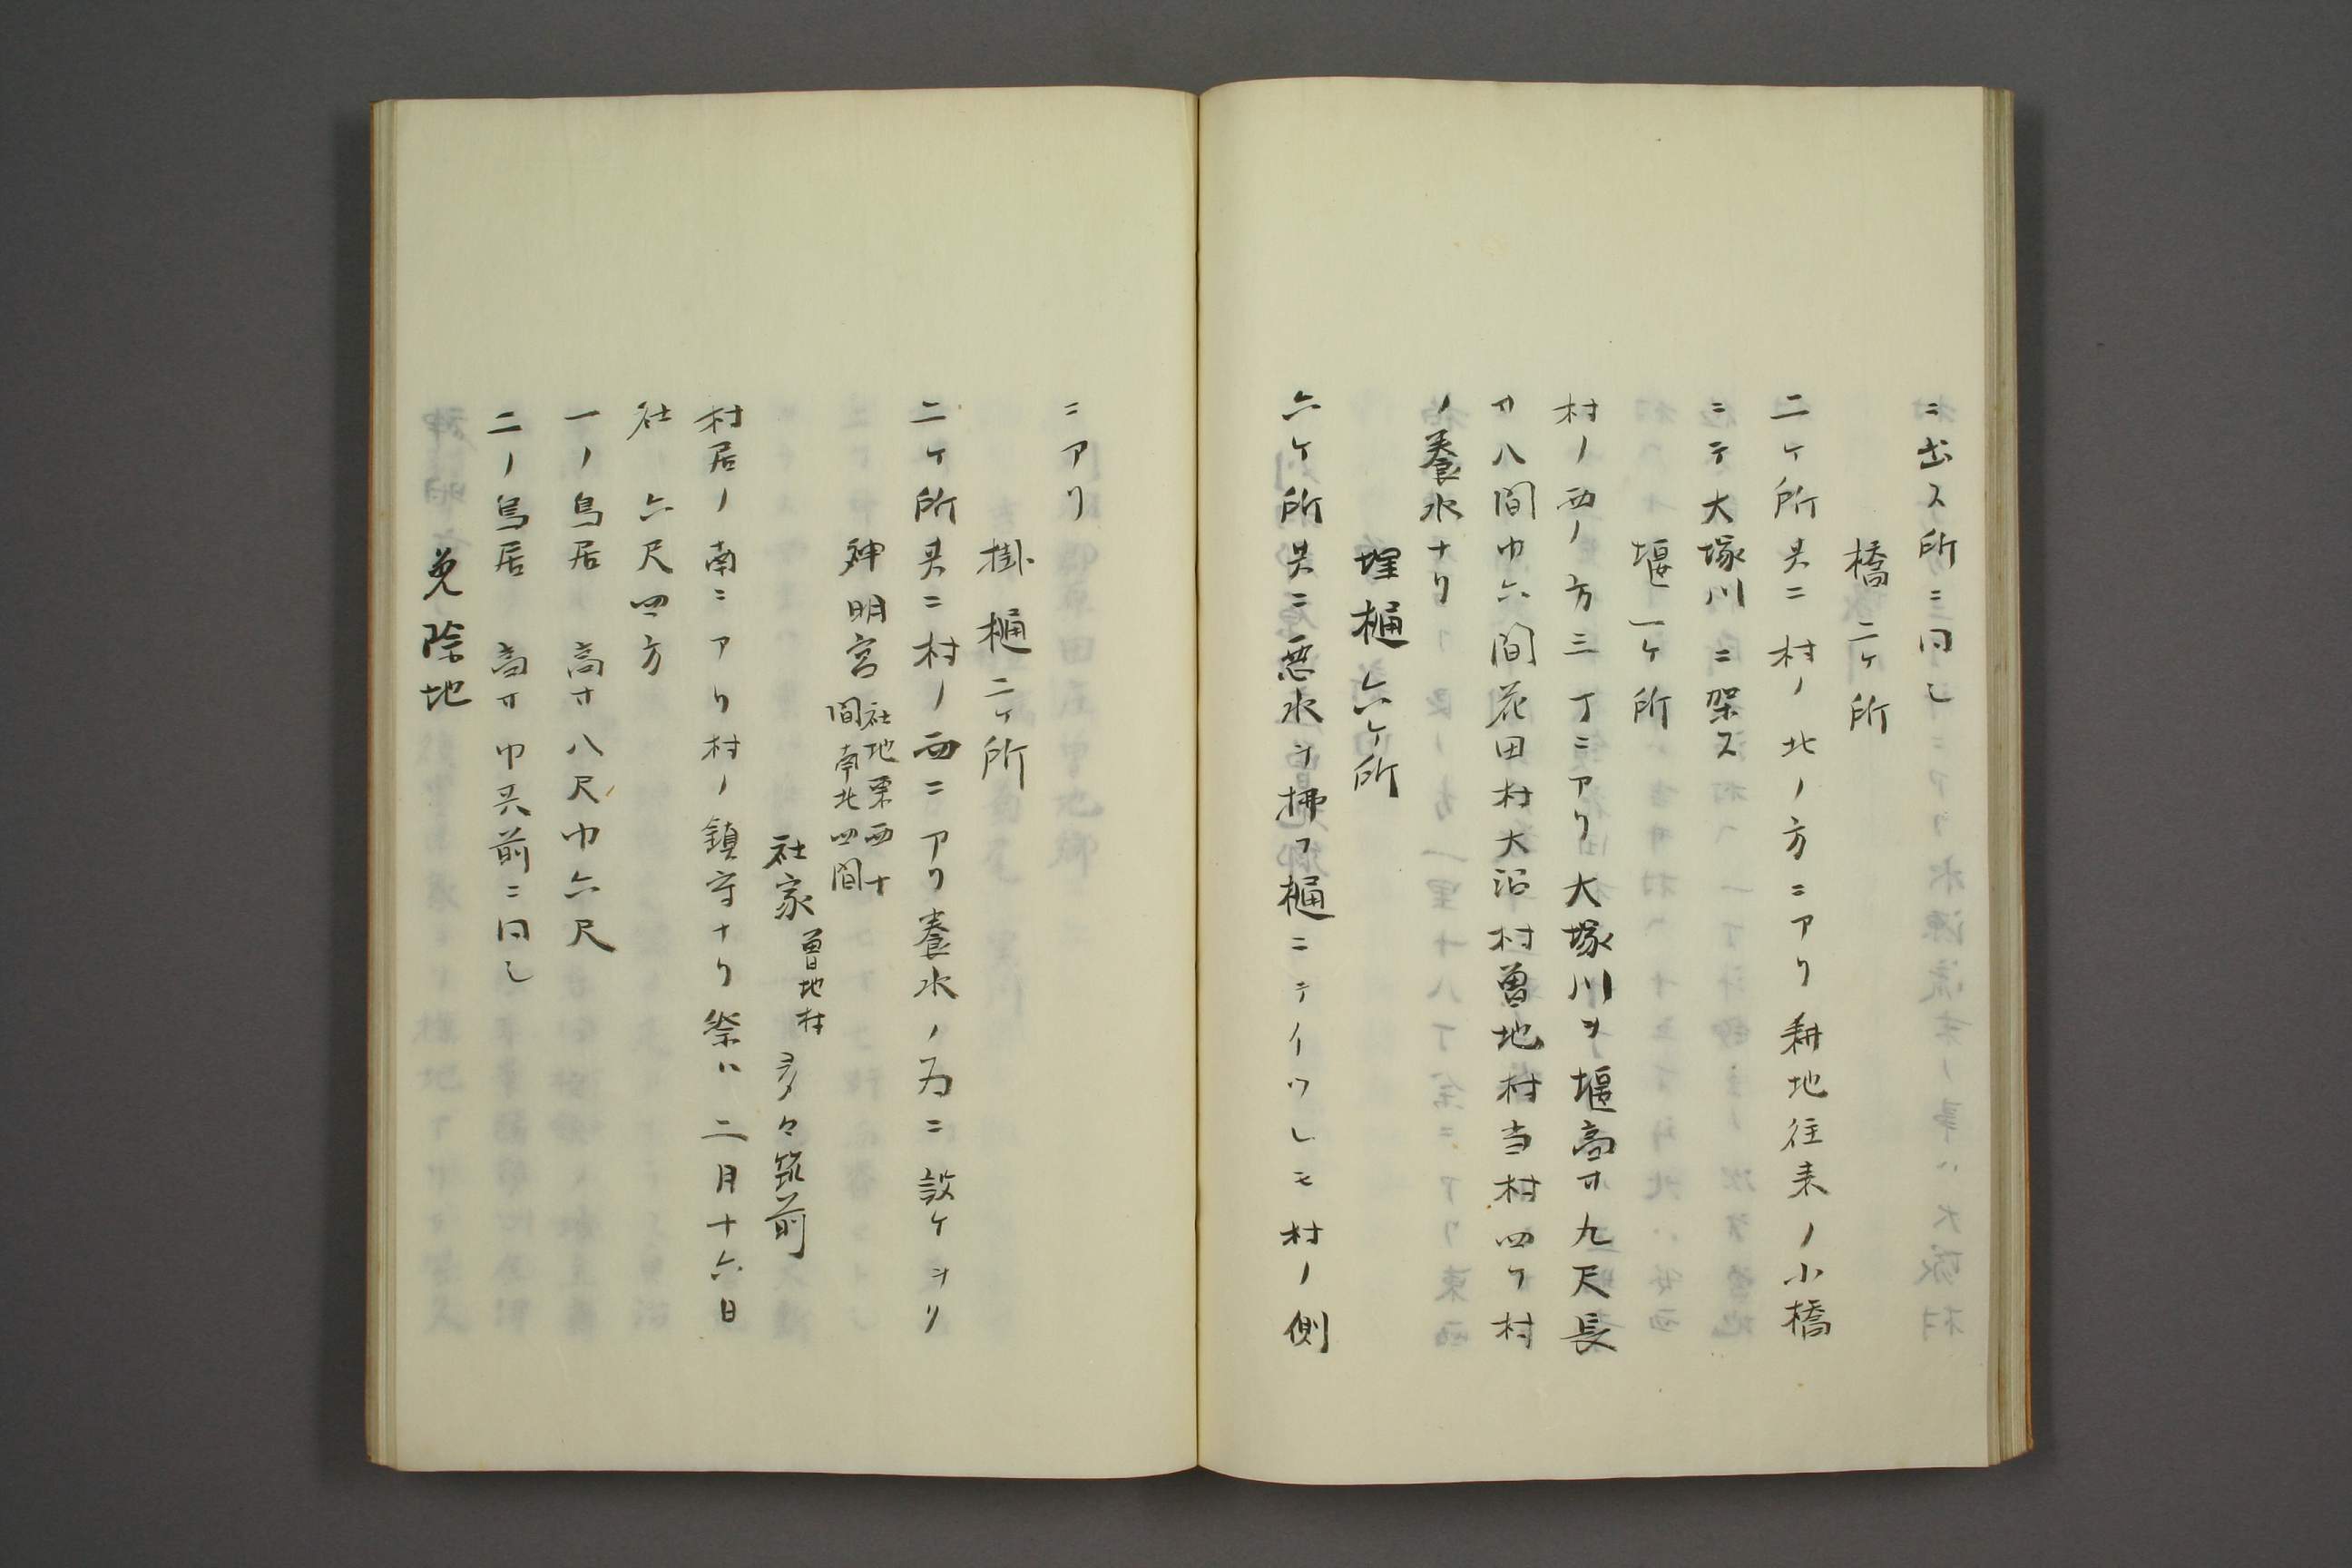 ニ出ス所ニ同し
橋二ヶ所
二ヶ所共ニ村ノ北ノ方ニアリ耕地往来ノ小橋
ニテ大塚川ニ架ス
堰一ヶ所
村ノ西ノ方三丁ニアリ大塚川ヲ堰高サ九尺長
サ八間巾六間花田村大沼村曽地村当村四ケ村
ノ養水ナリ
埋樋六ヶ所
六ヶ所共ニ悪水ヲ掃フ樋ニテイツレモ村ノ側
ニアリ
掛樋二ヶ所
二ヶ所共ニ村ノ西ニアリ養水ノ為ニ設ケヲリ
神明宮 社地東西十
間南北四間
社家 曽地村 多々筑前
村居ノ南ニアリ村ノ鎮守ナリ祭ハ二月十六日
社 六尺四方
一ノ鳥居 高サ八尺巾六尺
二ノ鳥居 高サ巾共前ニ同し
免除地